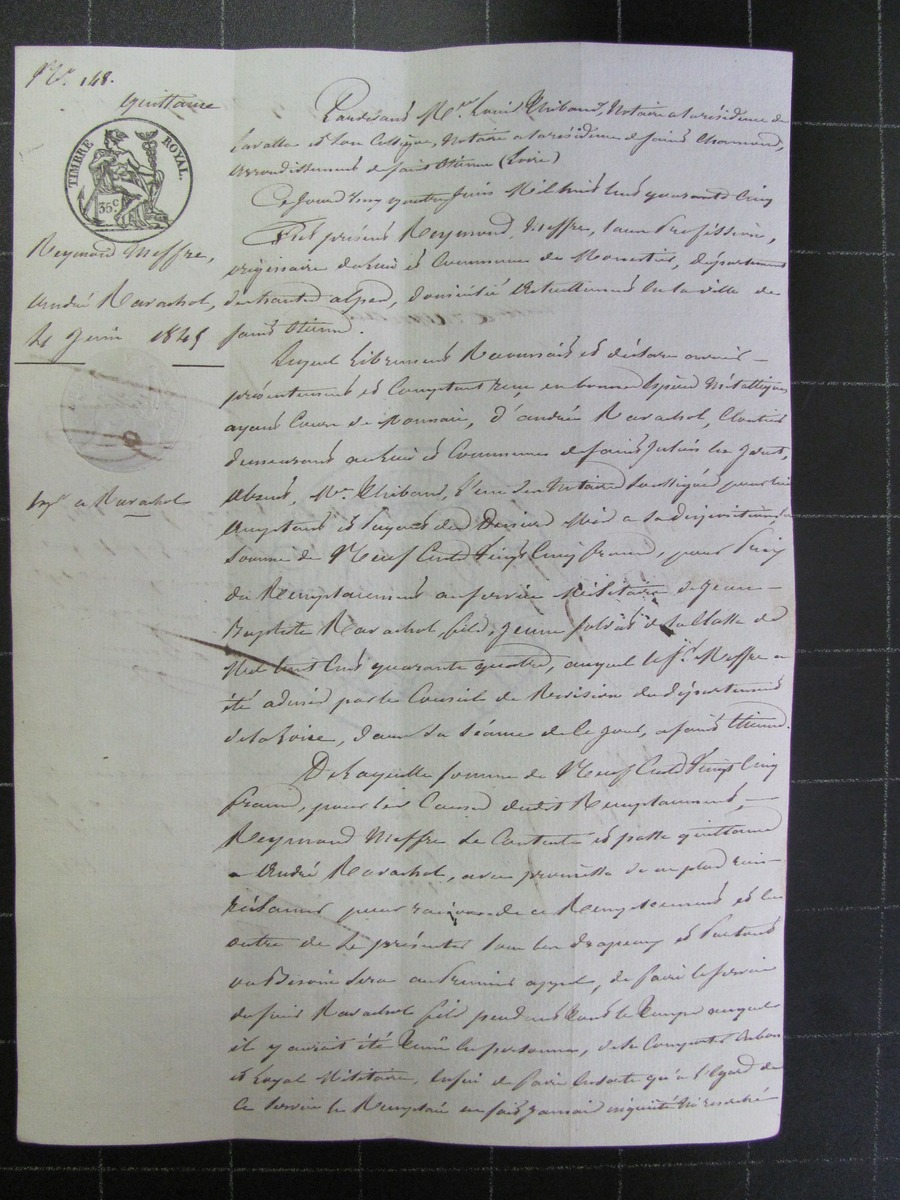 N.º 148.
quittance
TIMBRE ROYAL.
35 c
Reymond Meffre,
André Ravachol,
4 Juin 1845
Exp. a Ravachol
Pardevant M.e Louis Thibaud, Notaire a la résidence de
Lavalla et son Collègue, Notaire a la résidence de Saint Chamond,
arrondissement de Saint Etienne (Loire)
Ce Jourd'huy quatre Juin Mil huit cent quarante Cinq
Fut présent Reymond Meffre, sans Profession,
originaire du lieu et Commune de Monestier, département
des hautes alpes, domicilié actuellement en la ville de
Saint Etienne.
Lequel librement Reconnait et déclare avoir
présentement et Comptant reçu, en bonnes Espèces Métalliques
ayant Cours de Monnaie, d'andré Ravachol,
demeurant au lieu et Commune de Saint Julien en Jarret,
absent, M.e Thibaud, l'un des Notaires Soussignés pour lui
acceptant et payant des Deniers Mis a sa disposition, la
Somme de Neuf Cent Vingt Cinq francs, pour Prix
du Remplacement au service Militaire de Jean
Baptiste Ravachol fils, Jeune soldat de la Classe de
Mil huit Cent quarante quatre, auquel le s.r Meffre a
été admis par le Conseil de Revision du département
de la Loire, dans sa séance de ce Jour, a Saint Etienne.
De laquelle somme de Neuf Cent Vingt Cinq
francs, pour les Causes dudit Remplacement,
Reymond Meffre se Contente et passe quittance
a André Ravachol, avec promesse de ne plus rien
réclamer pour raison de ce Remplacement et en
outre de se présenter sous les drapeaux et Partout
ou Besoin sera au Premier appel, de faire le service
dudit Ravachol fils pendant tout le temps auquel
il y aurait été tenu en personne, de se Comporter en bon
et loyal Militaire, Enfin de faire ensorte qu'a l'Egard de
Ce service le Remplacé ne soit Jamais inquiété ni recherché